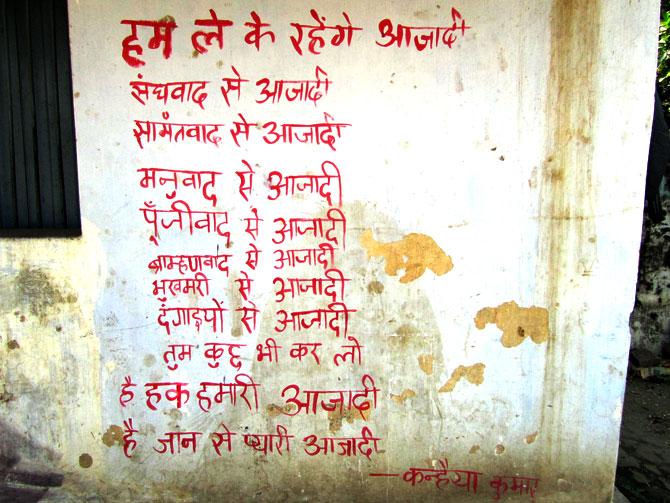 हम ले के रहेंगे आजादी
संघवाद से आजादी
सामंतवाद से आजादी
मनुवाद से आजादी
पूँजीवाद से आजादी
ब्राम्हणवाद से आजादी
भुखमरी से आजादी
दंगाइयों से आजादी
तुम कुछ भी कर लो
है हक हमारी आजादी
है जान से प्यारी आजादी
—कन्हैया कुमार